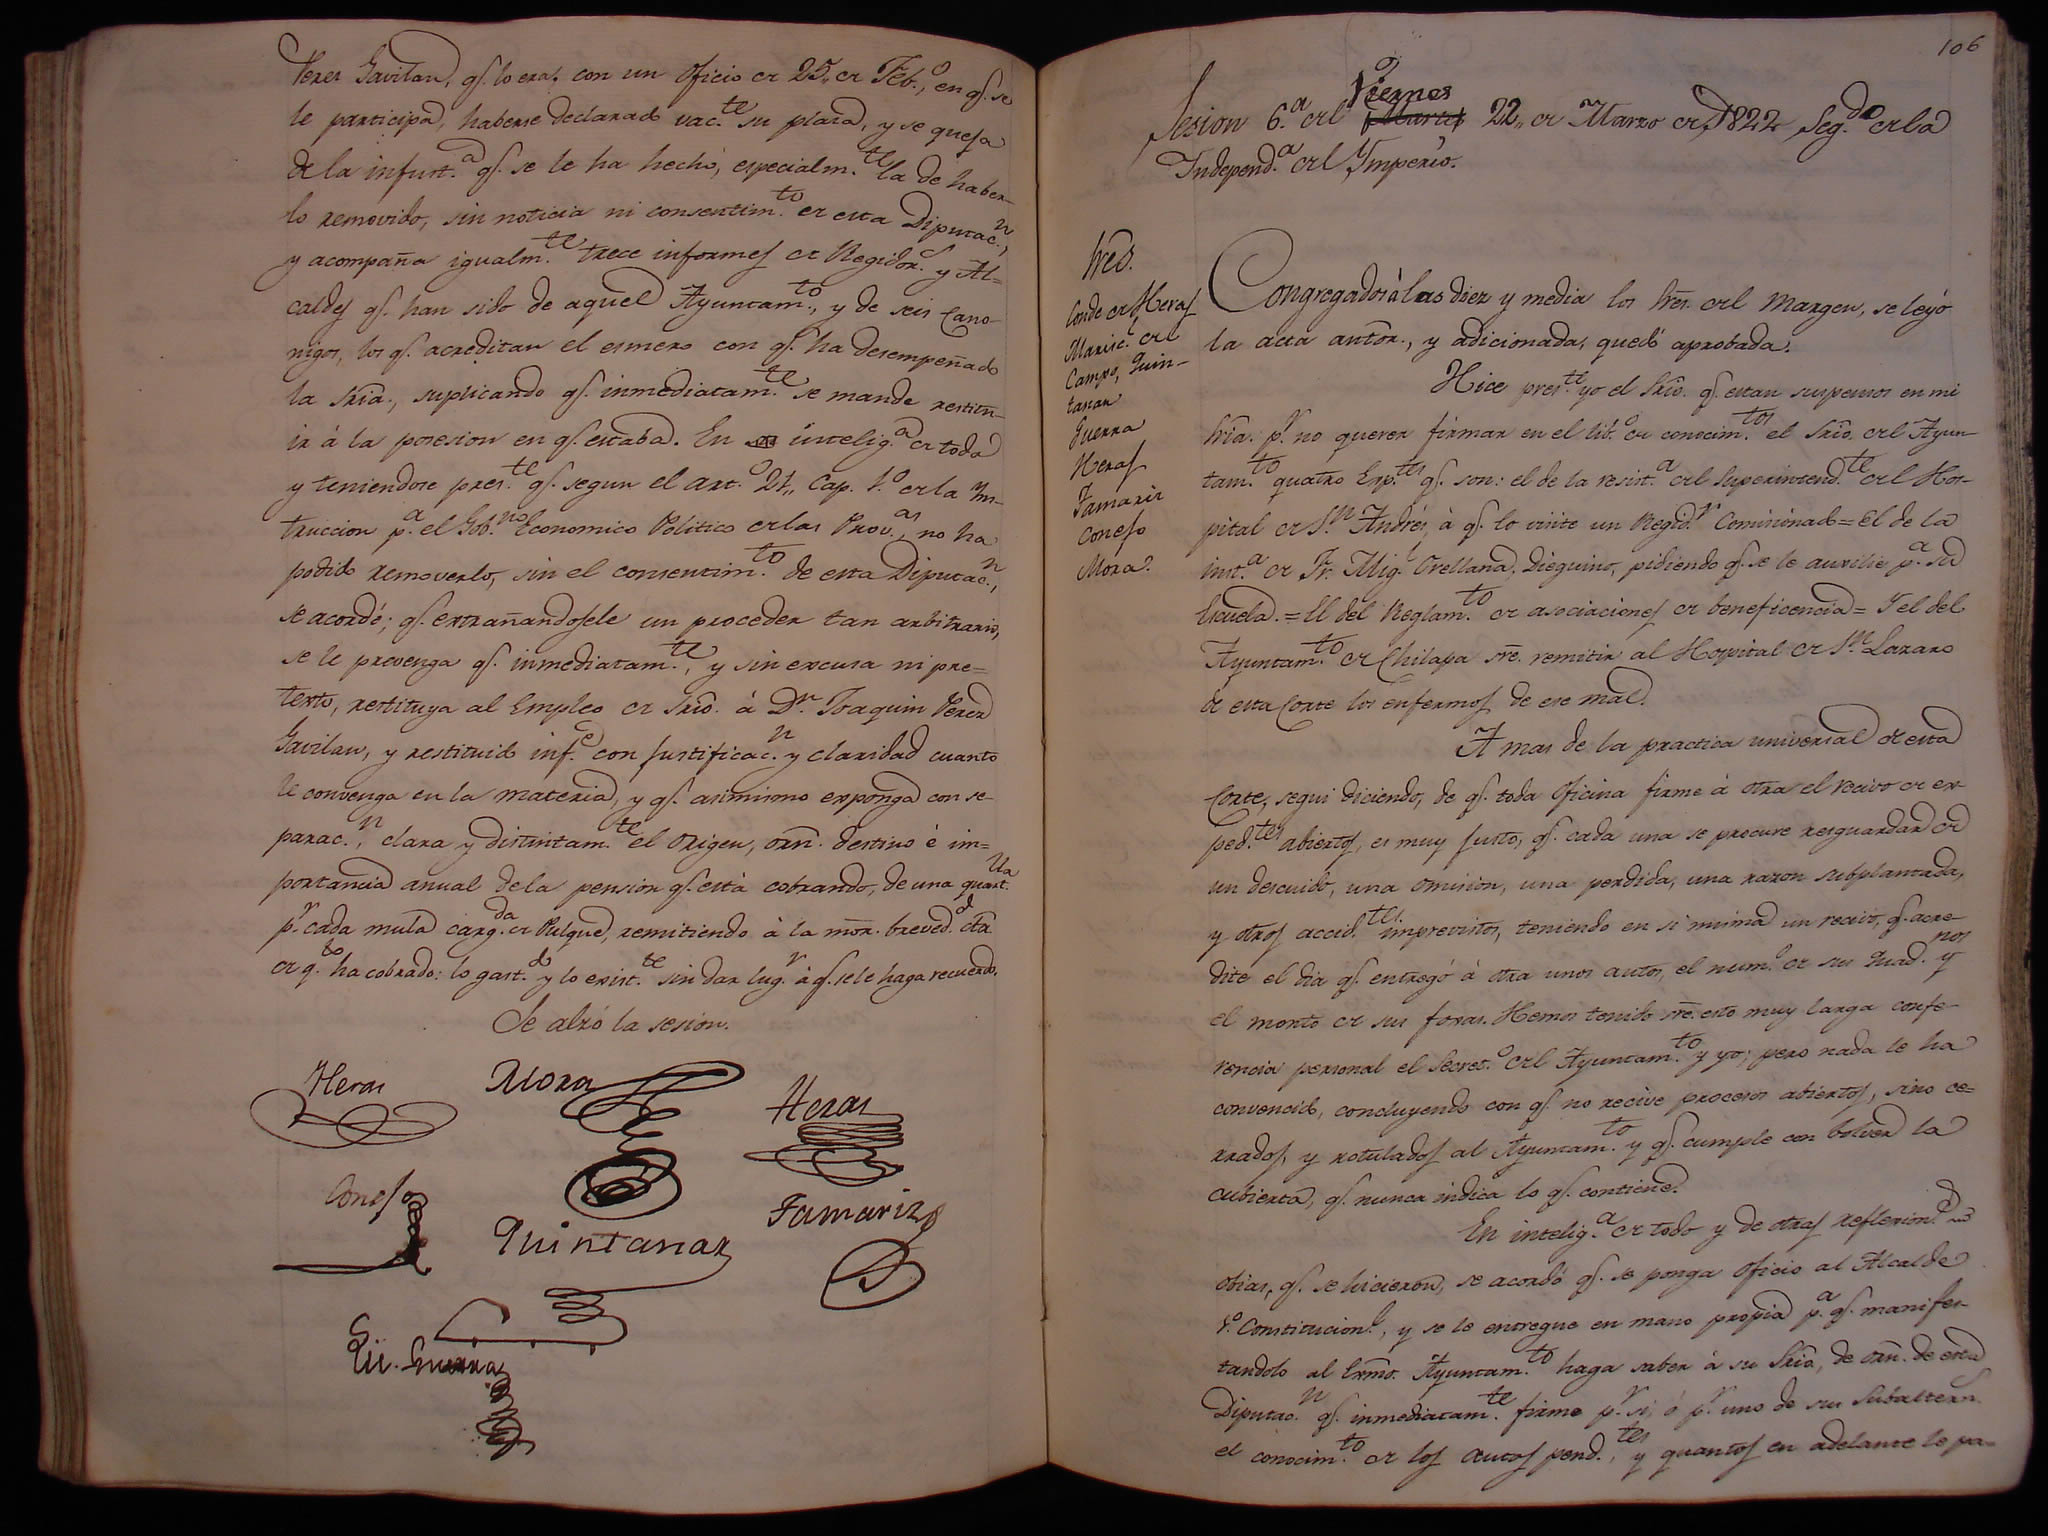 Perez Gavilan, q.e lo era, con un Oficio de 25,, de Feb.o, en q.e se
le participa, haberse declarado vac.te su plaza, y se queja
de la injust.a q.e se le ha hecho, especialm.te la de haber-
lo removido, sin noticia ni consentim.to de esta Diputac.n,
y acompaña igualm.te trece informes de Regidor.s y Al=
caldes q.e han sido de aquel Ayuntam.to, y de seis Cano-
nigos, los q.e acreditan el esmero con q.e ha desempeñado
la Sria., suplicando q.e inmediatam.te se mande restitu-
ir á la posesion en q.e estaba. En intelig.a de todo
y teniendose pres.te q.e segun el art.o 21,, Cap. 1.o de la Yns-
truccion p.a el Gob.no Economico Politico de las Prov.as, no ha
podido removerlo, sin el consentim.to de esta Diputac.n,
se acordó; q.e extrañandosele un proceder tan arbitrario,
se le prevenga q.e inmediatam.te, y sin excusa ni pre=
texto, restituya al Empleo de Srio. á D.n Joaquin Perez
Gavilan, y restituido inf.e con justificac.n y claridad cuanto
le convenga en la materia, y q.e asimismo exponga con se-
parac.n, clara y distintam.te el origen, orn. destino é im=
portancia anual de la pension q.e está cobrando, de una quart.lla
p.r cada mula carg.da de Pulque, remitiendo á la mor. breved.d cta.
de q.to ha cobrado: lo gast.do y lo exist.te sin dar lug.r á q.e se le haga recuerdo.
Se alzó la sesion.
Heras Mora Heras
Conejo Quintanar Tamariz
Guerra
106
Sesion 6.a del Viernes Martes 22,, de Marzo de 1822 Seg.do de la
Yndepend.a del Ymperio.
Sres.
Conde de Heras
Marisc.l del
Campo, Quin-
tanar
Guerra
Heras
Tamariz
Conejo
Mora.
Congregados á las diez y media los Sres. del Margen, se leyó
la acta antor., y adicionada, quedó aprobada.
Hice pres.te yo el Srio. q.e estan suspensos en mi
Sria. p.r no querer firmar en el lib.o de conocim.tos el Srio. del Ayun-
tam.to quatro Exp.tes q.e son: el de la resist.a del Superintend.te del Hos-
pital de S.n Andrés, á q.e lo visite un Regid.r Comisionado = El de la
inst.a de Fr. Mig.l Orellana, Dieguino, pidiendo q.e se le auxilie p.a su
Escuela. = El del Reglam.to de asociaciones de beneficencia = Y el del
Ayuntam.to de Chilapa sre. remitir al Hospital de S.n Lazaro
de esta Corte los enfermos de ese mal.
A mas de la practica universal de esta
Corte, segui diciendo, de q.e toda Oficina firme á otra el recivo de ex-
ped.tes abiertos, es muy justo, q.e cada una se procure resguardar de
un descuido, una omision, una perdida, una razon subplantada,
y otros accid.tes imprevistos, teniendo en si misma un recivo, q.e acre-
dite el dia q.e entregó á otra unos autos, el num.o de sus quad.nos y
el monto de sus foxas. Hemos tenido sre. esto muy larga confe-
rencia personal el Secret.o del Ayuntam.to y yo; pero nada le ha
convencido, concluyendo con q.e no recive procesos abiertos, sino ce-
rrados, y rotulados al Ayuntam.to y q.e cumple con bolver la
cubierta, q.e nunca indica lo q.e contiene.
En intelig.a de todo y de otras reflexion.s
obias, q.e se hicieron, se acordó q.e se ponga Oficio al Alcalde
1.o Constitucion.l, y se le entregue en mano propia p.a q.e manifes-
tandolo al Exmo. Ayuntam.to haga saber á su Srio, de orn. de esta
Diputac.n q.e inmediatam.te firme p.r si, ó p.r uno de sus Subaltern.
el conocim.to de los autos pend.tes, y quantos en adelante le pa-